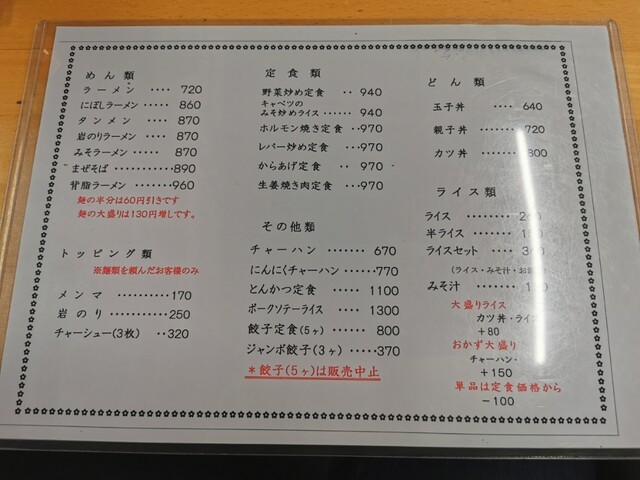 めん類
ラーメン ···· 720
にぼしラーメン ····· 860
タンメン ···· 870
岩のりラーメン ···· 870
みそラーメン ···· 870
まぜそば ··········· 890
背脂ラーメン ······· 960
麺の半分は60円引きです
麺の大盛りは130円増しです。
トッピング類
※麺類を頼んだお客様のみ
メンマ ·········· 170
岩のり ··········· 250
チャーシュー(3枚) ·· 320
定食類
野菜炒め定食 ·· 940
キャベツの
みそ炒めライス ······ 940
ホルモン焼き定食 ·· 970
レバー炒め定食 ··· 970
からあげ定食 ·· 970
生姜焼き肉定食 ··· 970
その他類
チャーハン ······· 670
にんにくチャーハン ······ 770
とんかつ定食 ····· 1100
ポークソテーライス ···· 1300
餃子定食(5ヶ) ······ 800
ジャンボ餃子(3ヶ) ····· 370
*餃子(5ヶ)は販売中止
どん類
玉子丼 ···· 640
親子丼 ······· 720
カツ丼 ······· 800
ライス類
ライス ········
半ライス ·······
ライスセット ····
(ライス・みそ汁・お
みそ汁 ·······
大盛りライス
カツ丼・ライ
+80
おかず大盛り
チャーハン・
+150
単品は定食価格から
-100